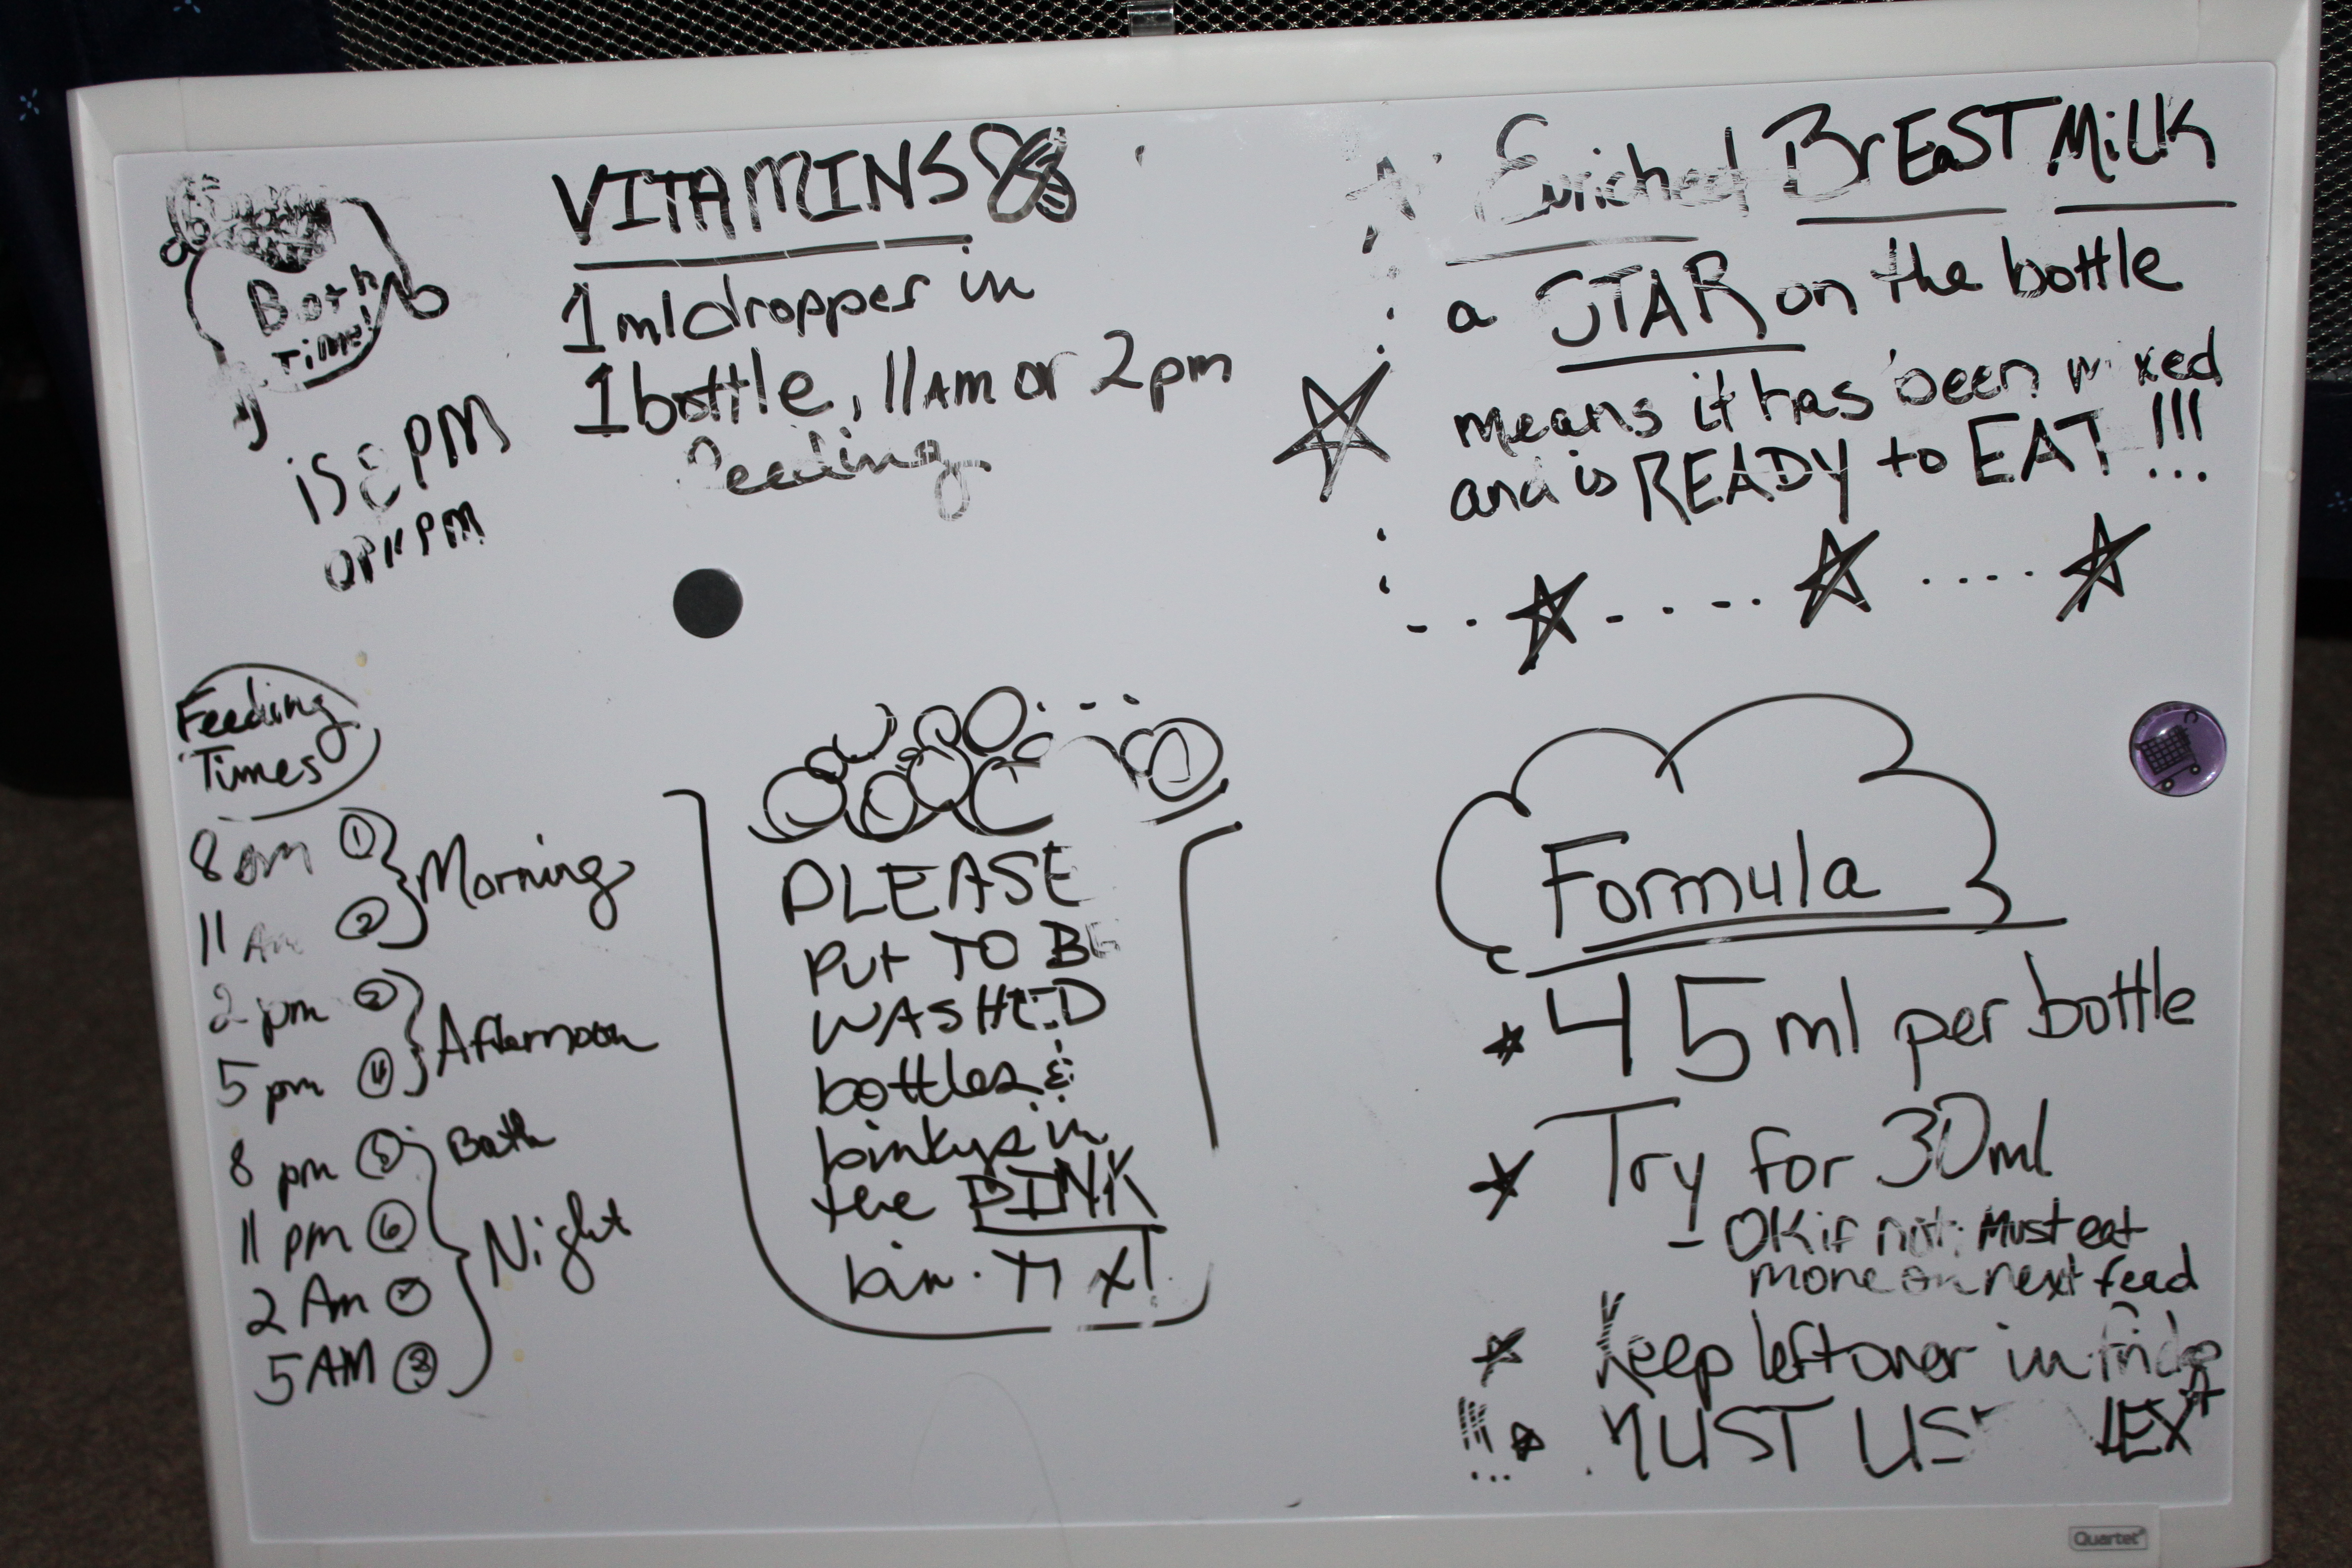 Bath
Time!
is 8 PM
or 11 PM
VITAMINS
1 ml dropper in
1 bottle, 11 AM or 2 pm
feeding
Enriched BrEaST MiLK
a STAR on the bottle
means it has been mixed
and is READY to EAT !!!
Feeding
Times
8 am 1
11 Am 2
Morning
2 pm 3
5 pm 4
Afternoon
8 pm 5 Bath
11 pm 6
2 Am 7
5 AM 8
Night
PLEASE
PUt TO BE
WASHED
bottles &
binkys in
the PINK
bin.
Formula
45 ml per bottle
Try for 30 ml
- OK if not. Must eat
more on next feed
Keep leftover in fridge
MUST USE NEXT
Quartet